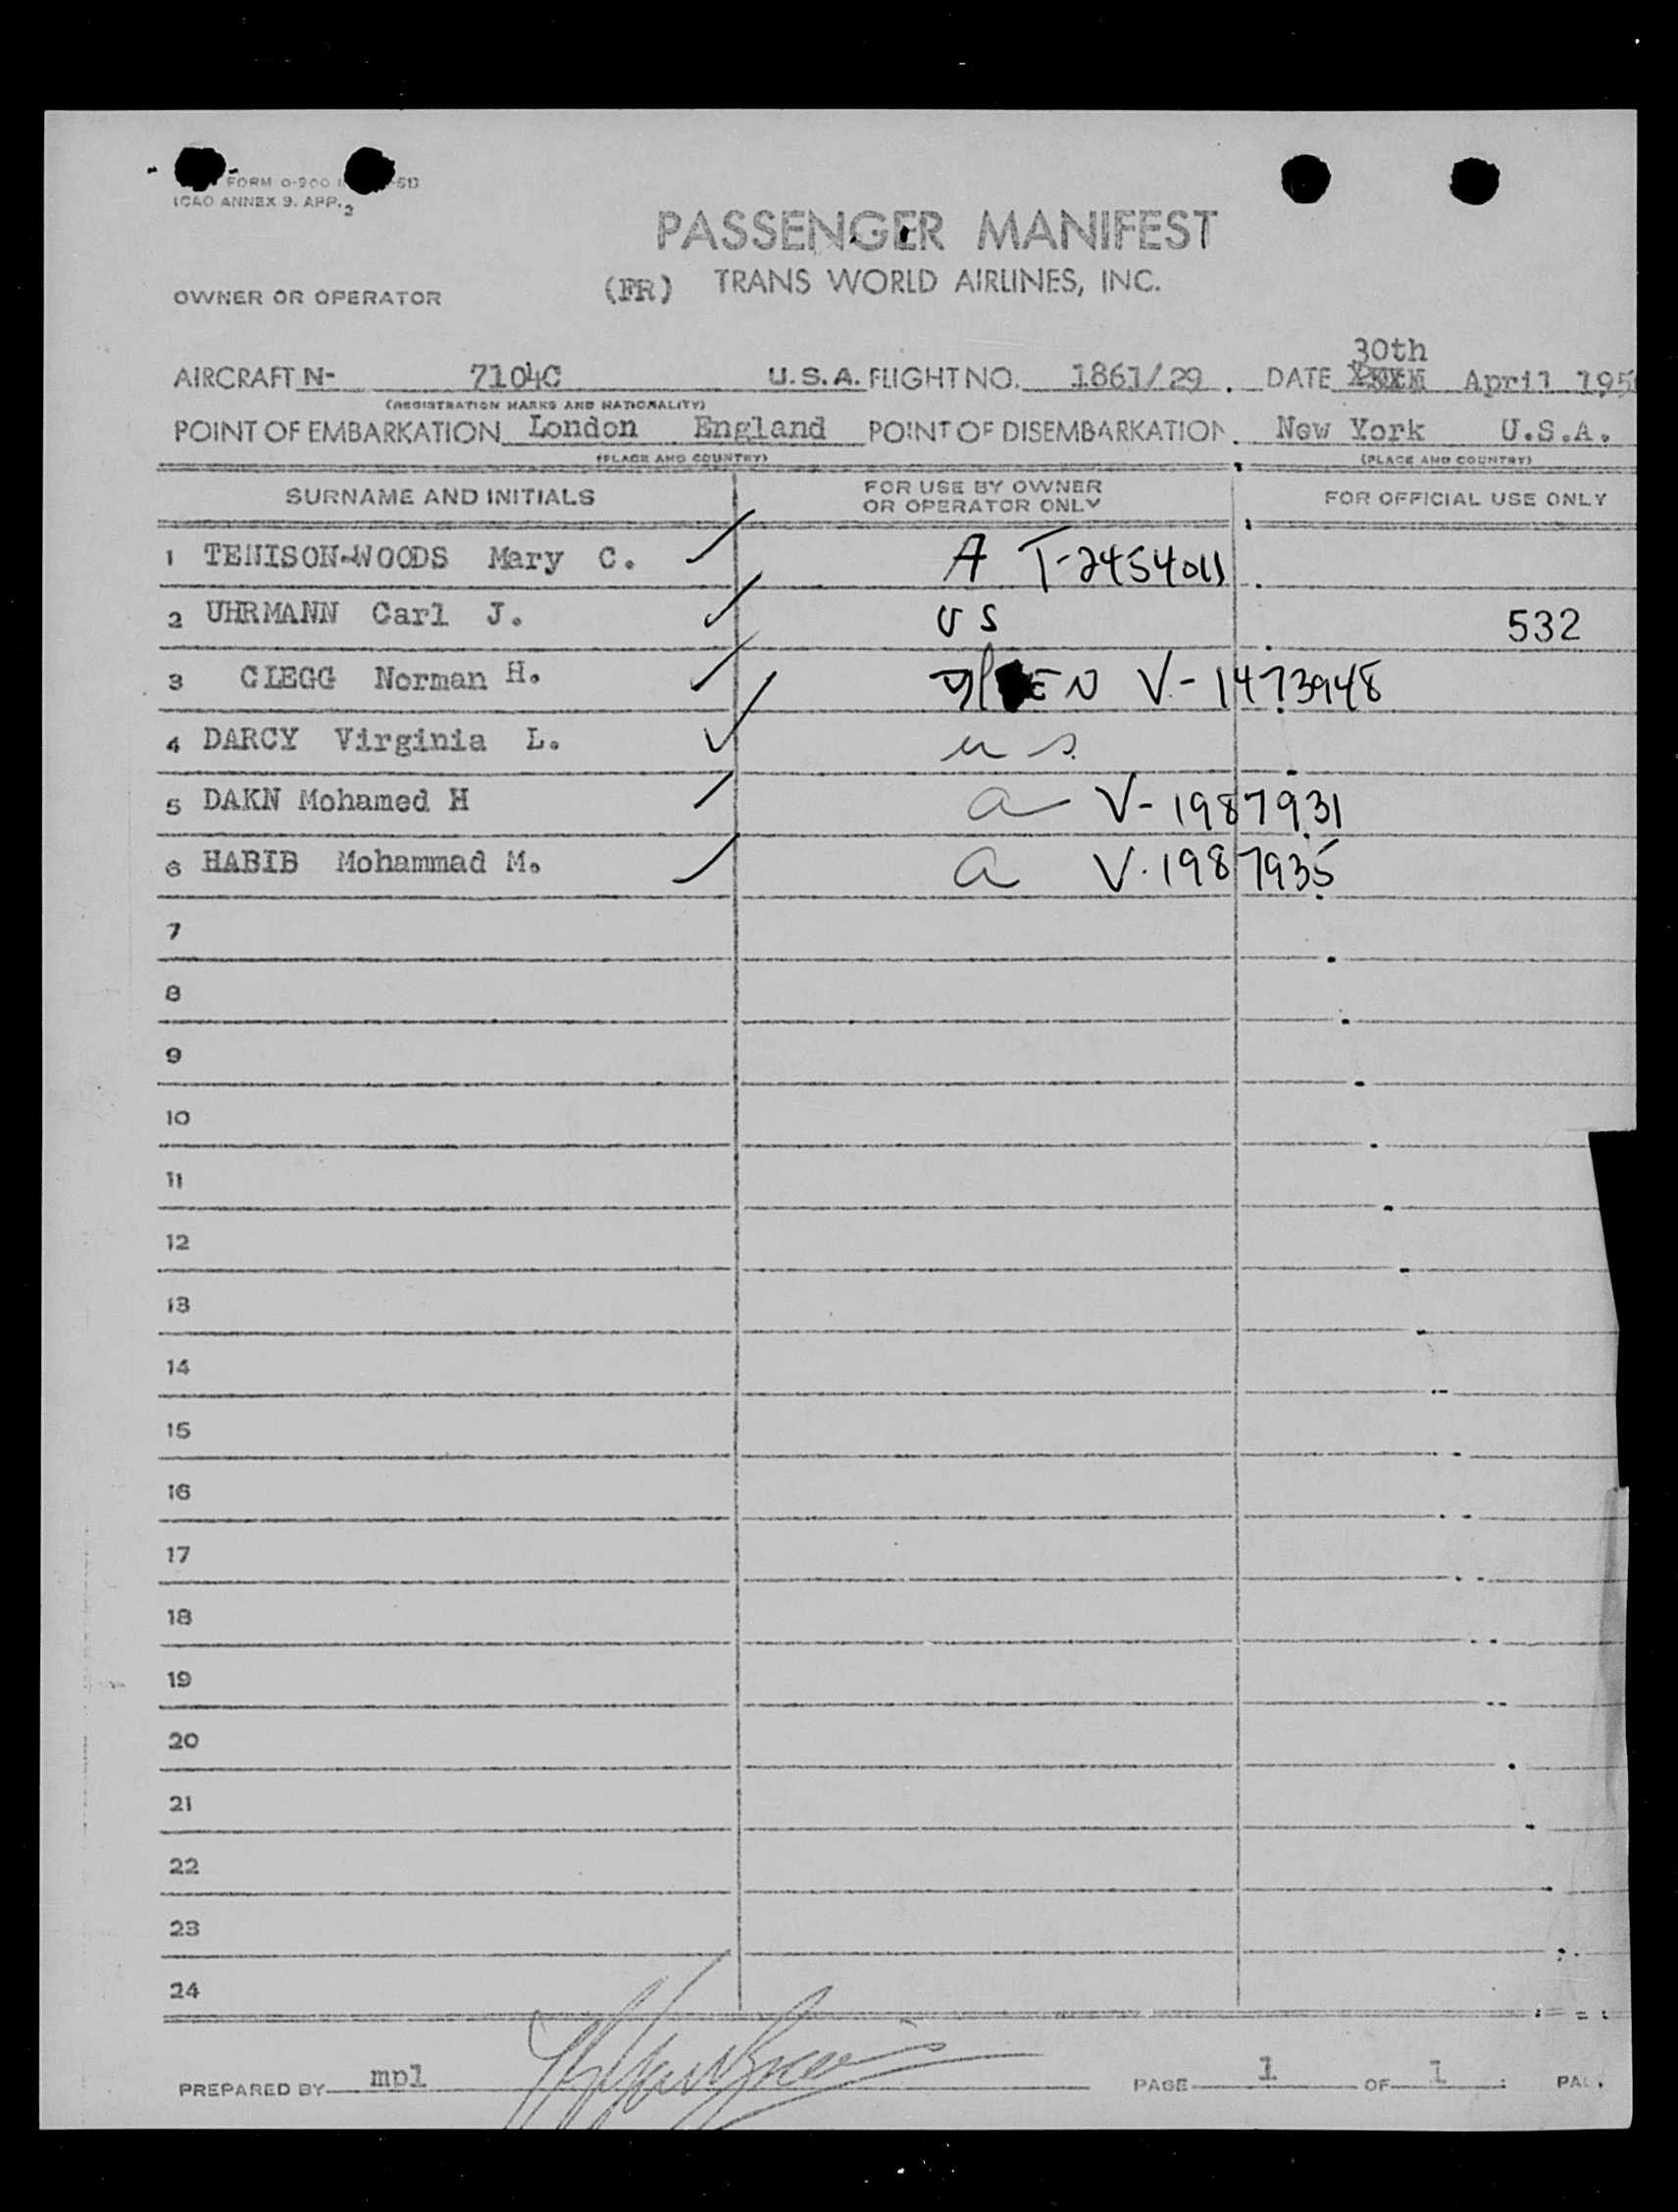 FORM 0-200
ICAO ANNEX 9. APP. 2
PASSENGER MANIFEST
OWNER OR OPERATOR (FR) TRANS WORLD AIRLINES, INC.
30th
AIRCRAFT N- 7104C U.S.A. FLIGHT NO. 1861/29 . DATE April 195
(REGISTRATION MARKS AND NATIONALITY)
POINT OF EMBARKATION London England POINT OF DISEMBARKATION New York U.S.A.
(PLACE AND COUNTRY) (PLACE AND COUNTRY)
SURNAME AND INITIALS FOR USE BY OWNER OR OPERATOR ONLY FOR OFFICIAL USE ONLY
1 TENISON-WOODS Mary C. A T-2454011
2 UHRMANN Carl J. US 532
3 CLEGG Norman H. V-1473948
4 DARCY Virginia L. us
5 DAKN Mohamed H a V-1987931
6 HABIB Mohammad M. a V.1987935
7
8
9
10
11
12
13
14
15
16
17
18
19
20
21
22
23
24
PREPARED BY mpl PAGE 1 OF 1